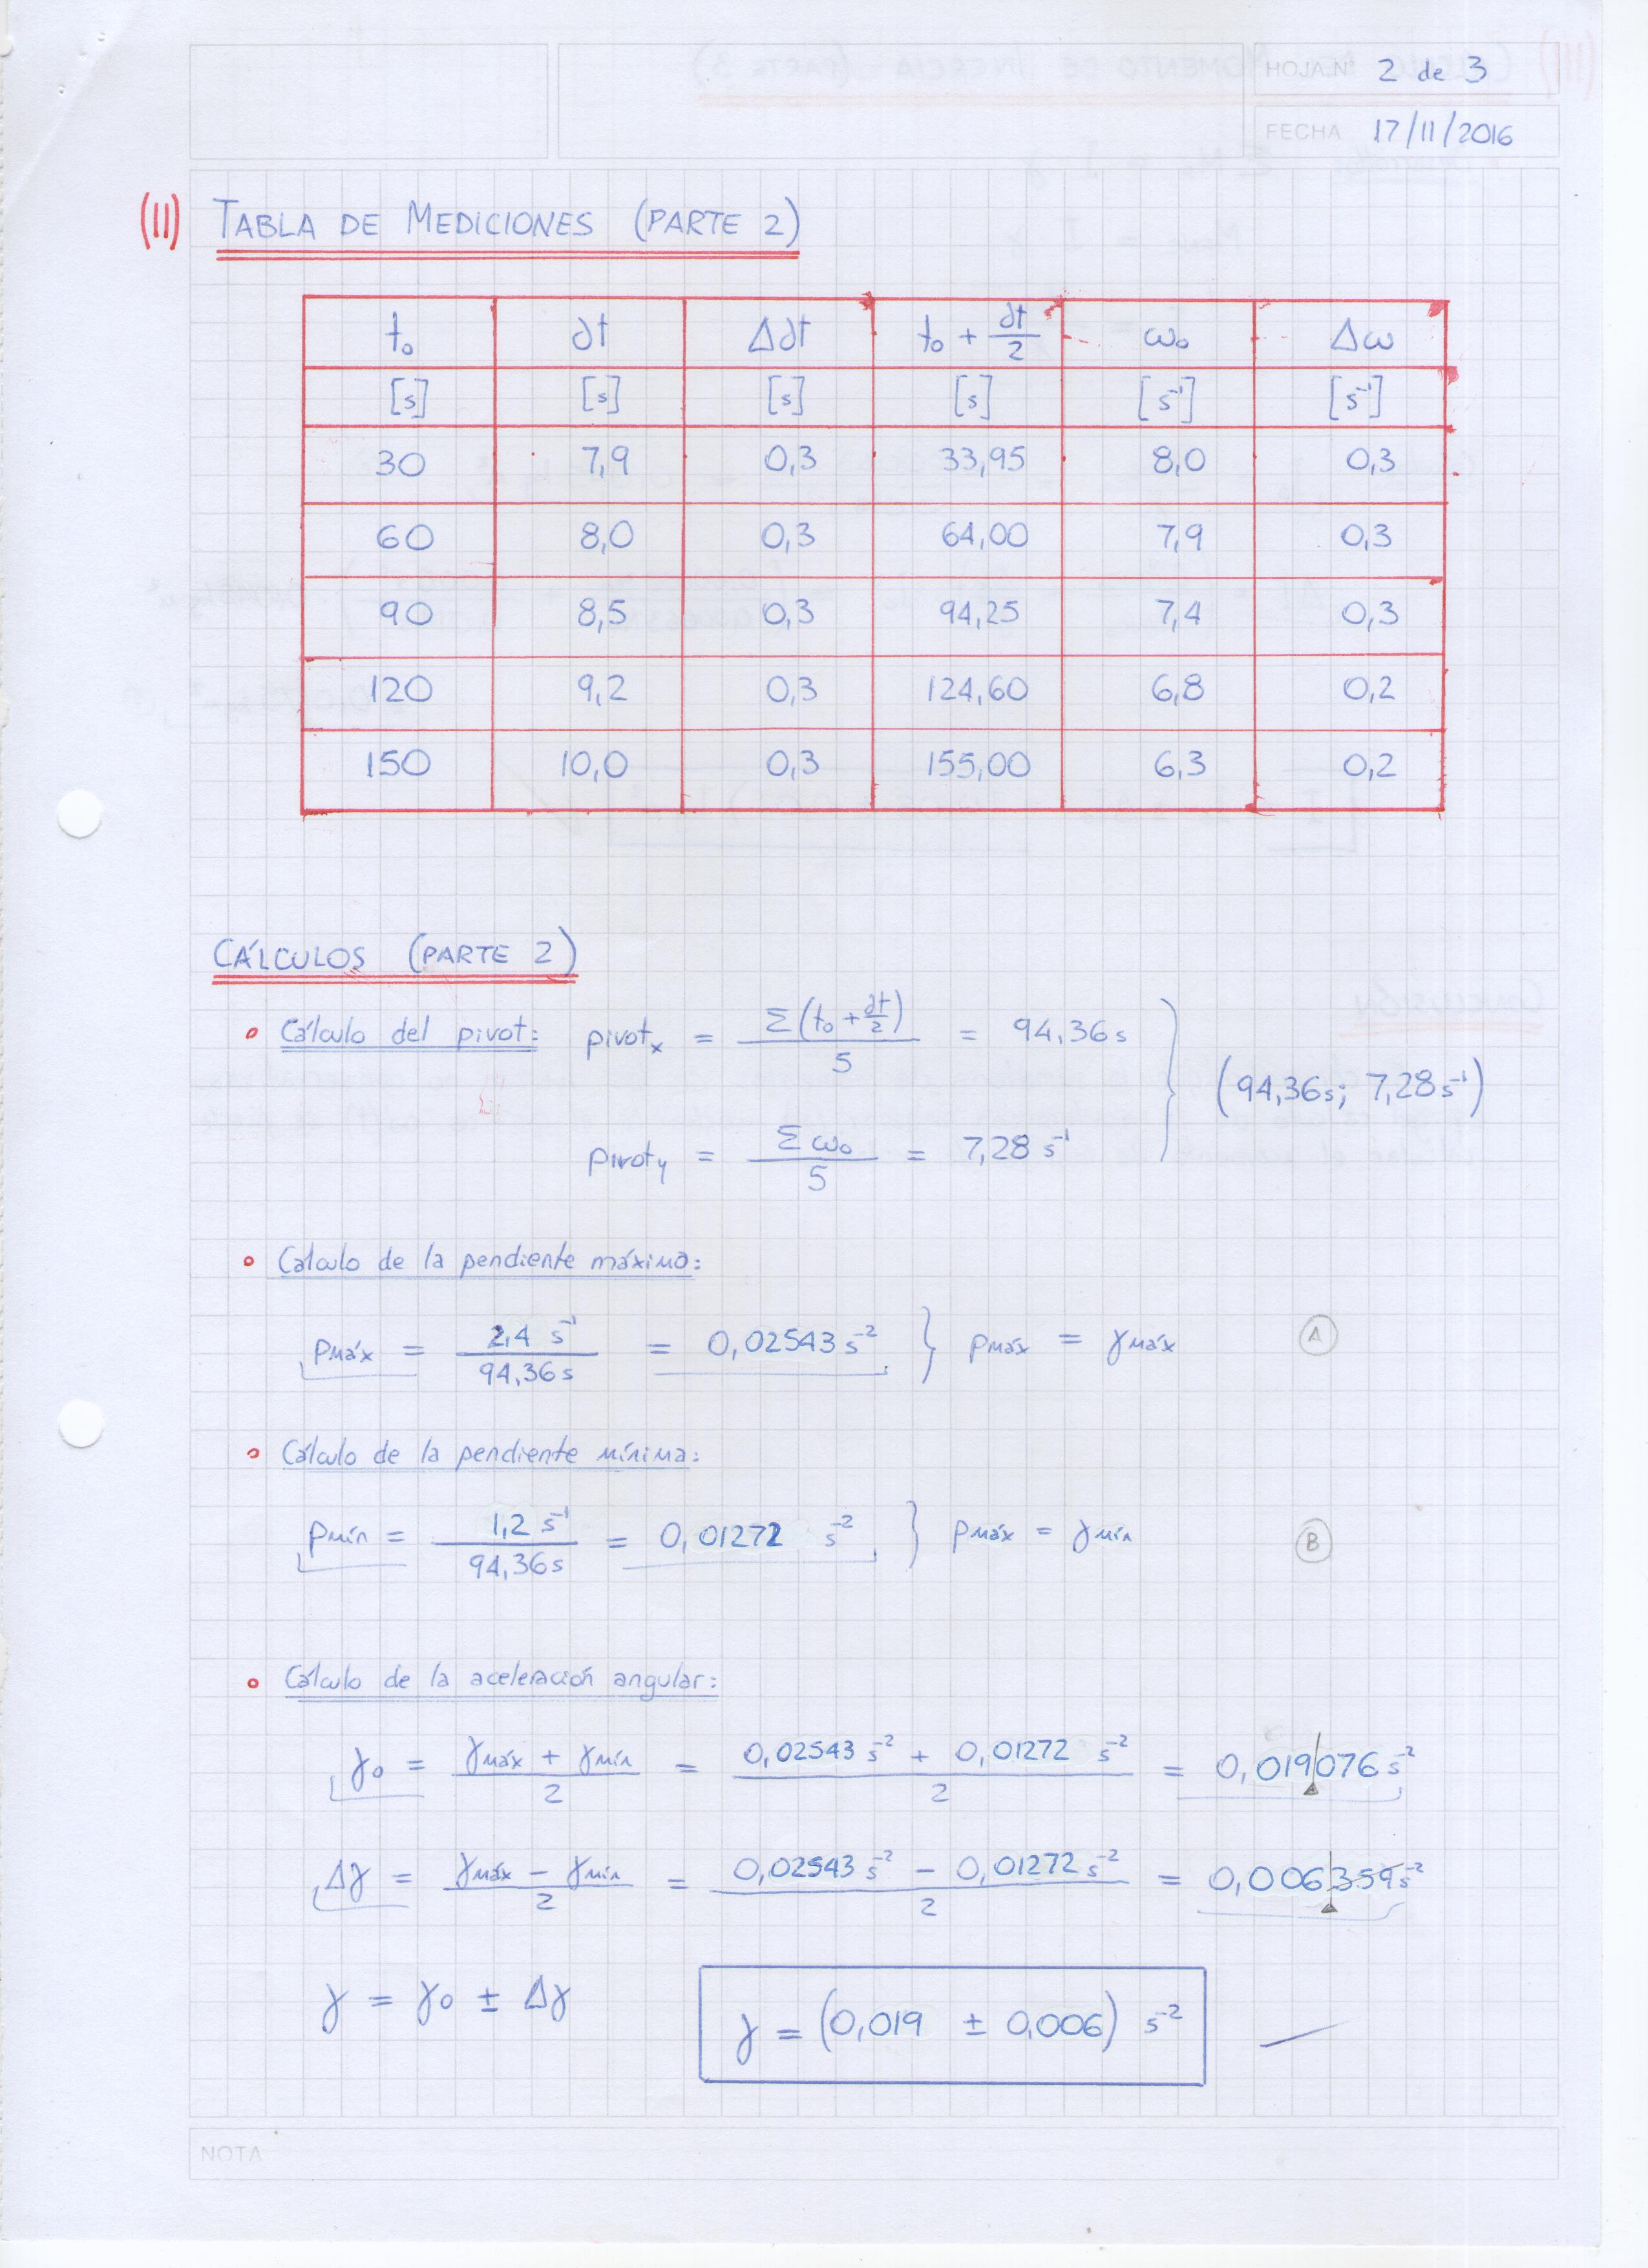 HOJA Nº 2 de 3
FECHA 17/11/2016
(II) TABLA DE MEDICIONES (PARTE 2)
t₀ ∂t Δ∂t t₀ + ∂t/2 ω₀ Δω
[s] [s] [s] [s] [s⁻¹] [s⁻¹]
30 7,9 0,3 33,95 8,0 0,3
60 8,0 0,3 64,00 7,9 0,3
90 8,5 0,3 94,25 7,4 0,3
120 9,2 0,3 124,60 6,8 0,2
150 10,0 0,3 155,00 6,3 0,2
CÁLCULOS (PARTE 2)
Cálculo del pivot: pivotₓ = Σ(t₀ + ∂t/2)/5 = 94,36 s } (94,36 s; 7,28 s⁻¹)
pivot_y = Σω₀/5 = 7,28 s⁻¹
Cálculo de la pendiente máxima:
pmáx = 2,4 s⁻¹/94,36 s = 0,02543 s⁻² } pmáx = γmáx A
Cálculo de la pendiente mínima:
pmín = 1,2 s⁻¹/94,36 s = 0,01272 s⁻² } pmáx = γmín B
Cálculo de la aceleración angular:
γ₀ = (γmáx + γmín)/2 = (0,02543 s⁻² + 0,01272 s⁻²)/2 = 0,019076 s⁻²
Δγ = (γmáx − γmín)/2 = (0,02543 s⁻² − 0,01272 s⁻²)/2 = 0,006359 s⁻²
γ = γ₀ ± Δγ γ = (0,019 ± 0,006) s⁻²
NOTA